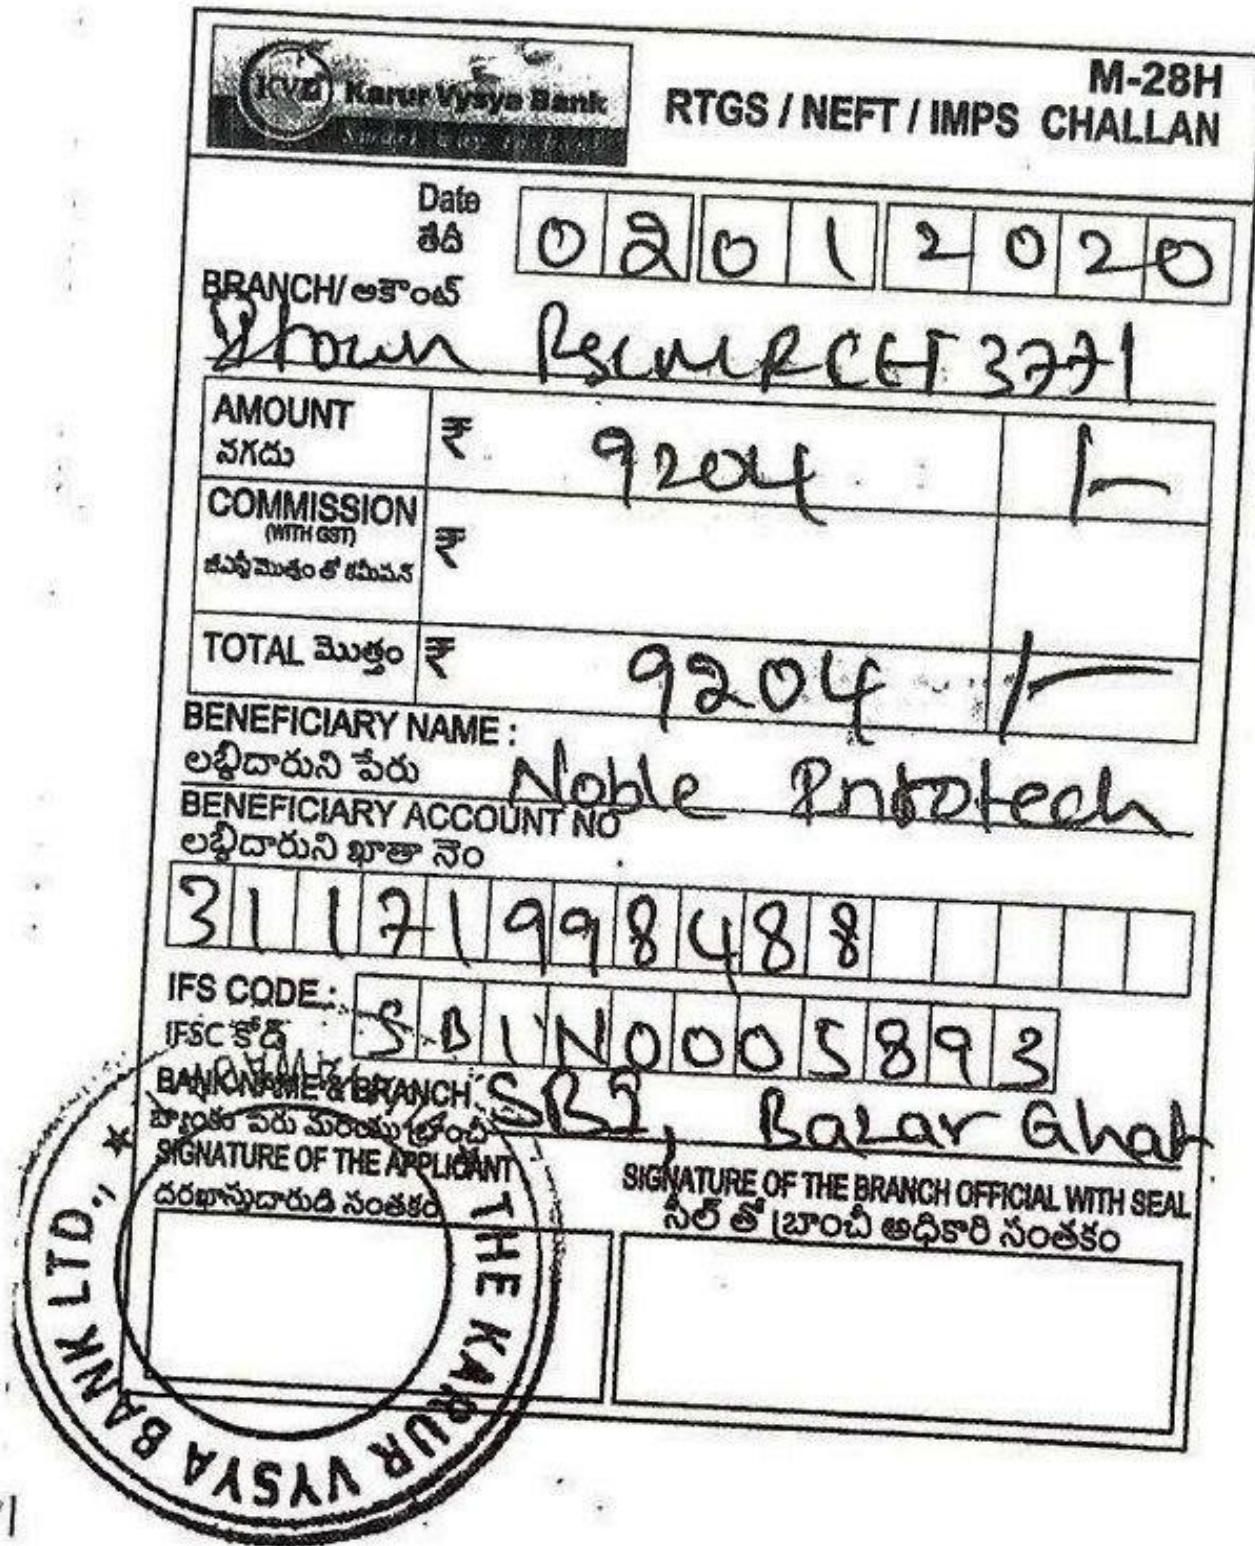 KVB Karur Vysya Bank
M-28H
RTGS / NEFT / IMPS CHALLAN
Date 02012020
తేదీ
BRANCH/ అకౌంట్
3771
AMOUNT ₹ 9204 /-
నగదు
COMMISSION ₹
(WITH GST)
జీఎస్టీ మొత్తం తో కమీషన్
TOTAL మొత్తం ₹ 9204 /-
BENEFICIARY NAME :
లబ్ధిదారుని పేరు Noble Infotech
BENEFICIARY ACCOUNT NO
లబ్ధిదారుని ఖాతా నెం
31171998488
IFS CODE : SBIN0005893
IFSC కోడ్
BANK NAME & BRANCH SBI, Bazar Ghat
బ్యాంకు పేరు మరియు బ్రాంచి
SIGNATURE OF THE APPLICANT
దరఖాస్తుదారుడి సంతకం
SIGNATURE OF THE BRANCH OFFICIAL WITH SEAL
సీల్ తో బ్రాంచీ అధికారి సంతకం
THE KARUR VYSYA BANK LTD.,